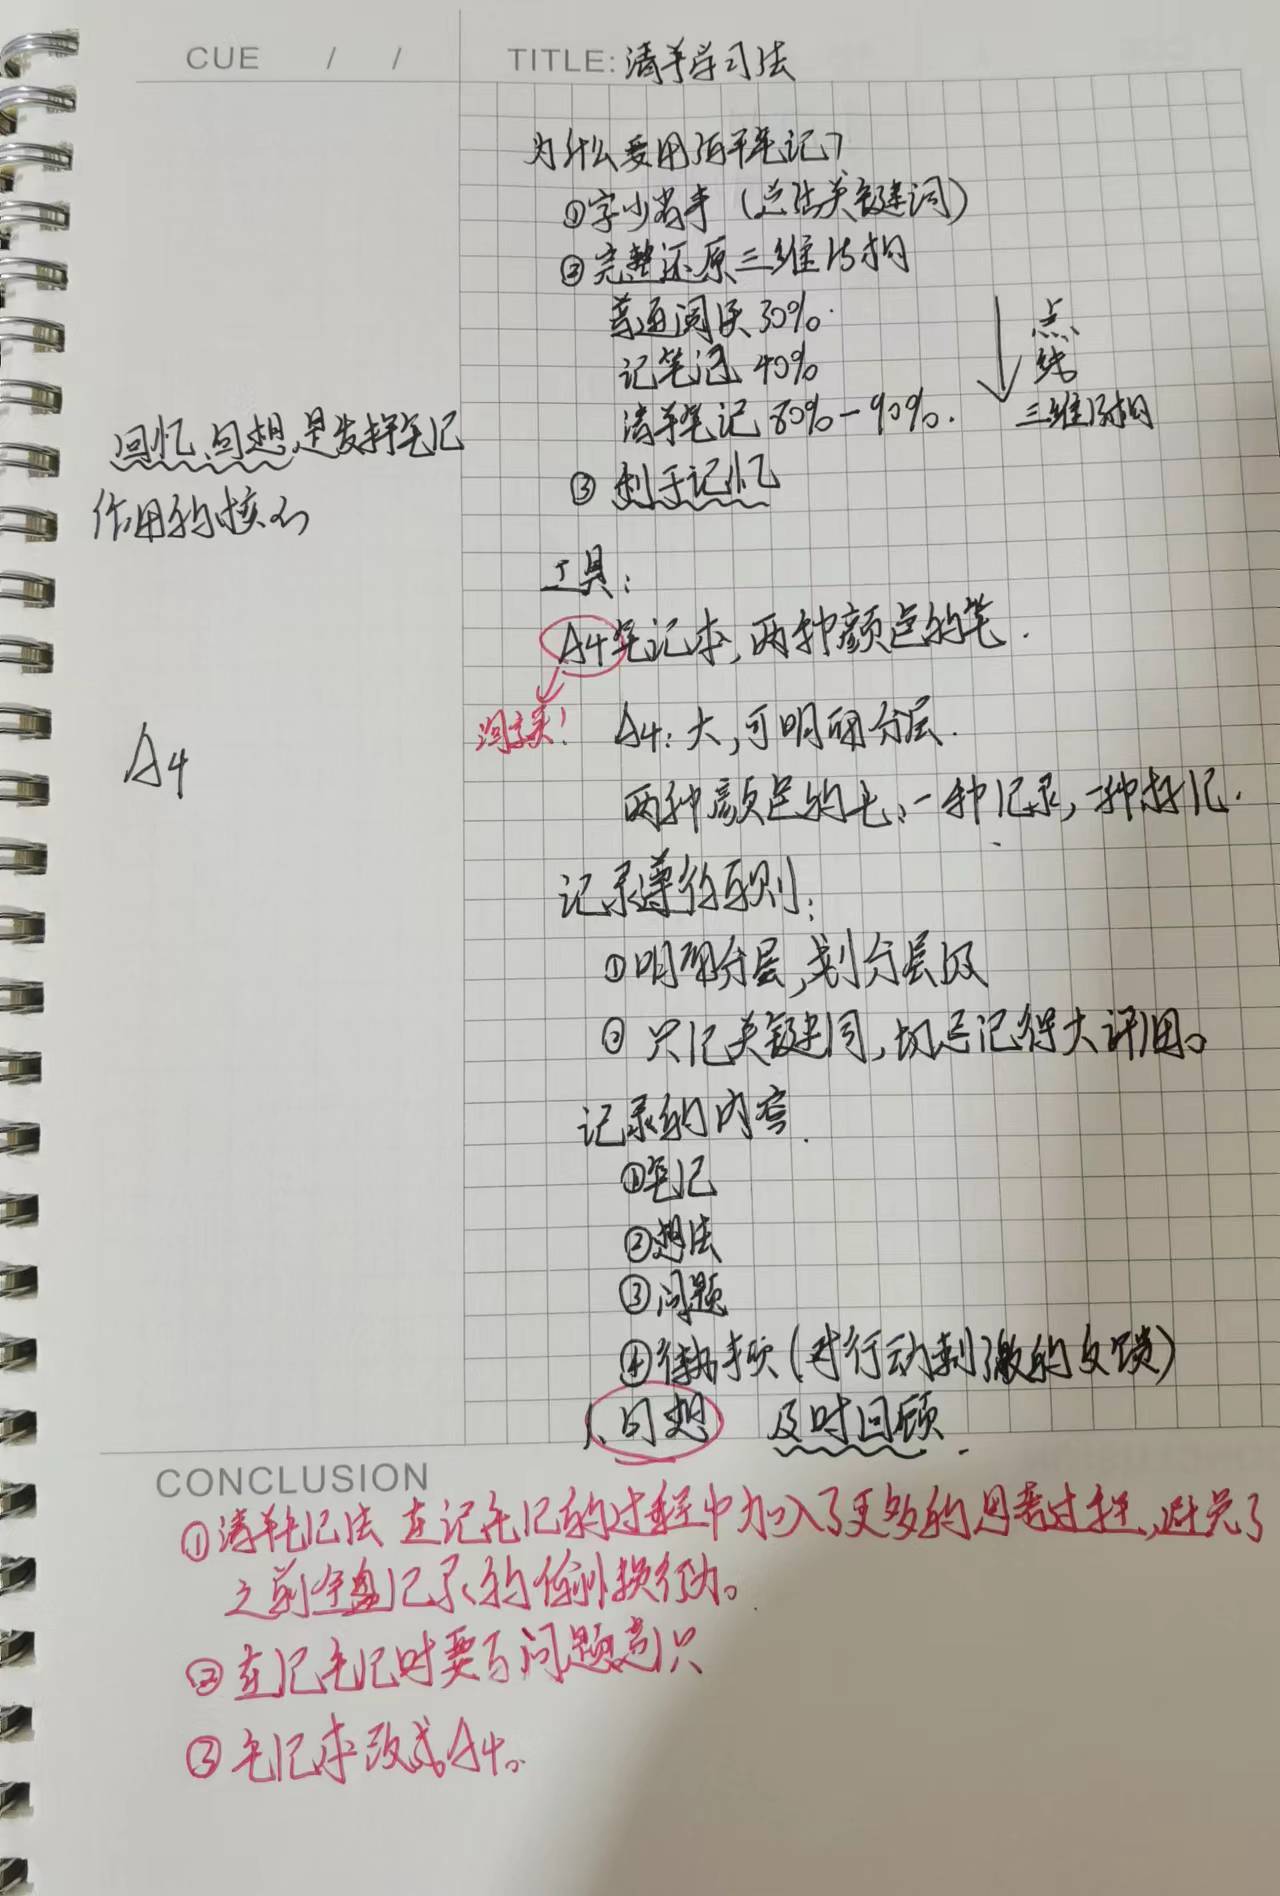 CUE / /
TITLE: 清单学习法
为什么要用清单笔记?
①字少省事 (总结关键词)
②完整还原三维结构
普通阅读 30%
记笔记 40%
清单笔记 80%-90%.
点
线
三维结构
③ 利于记忆
回忆、回想,是发挥笔记
作用的核心
工具:
A4笔记本,两种颜色的笔.
A4
A4: 大,可明确分层.
两种颜色的笔:一种记录,一种标记.
记录遵循原则:
①明确分层,划分层级
②只记关键词,切忌记得太详细。
记录的内容
①笔记
②想法
③问题
④待办事项(对行动刺激的反馈)
回想 及时回顾
CONCLUSION
①清单笔记法 在记笔记的过程中加入了更多的思考过程,避免了
之前全盘记录的偷懒行为。
②在记笔记时要有问题意识
③笔记本改成A4。